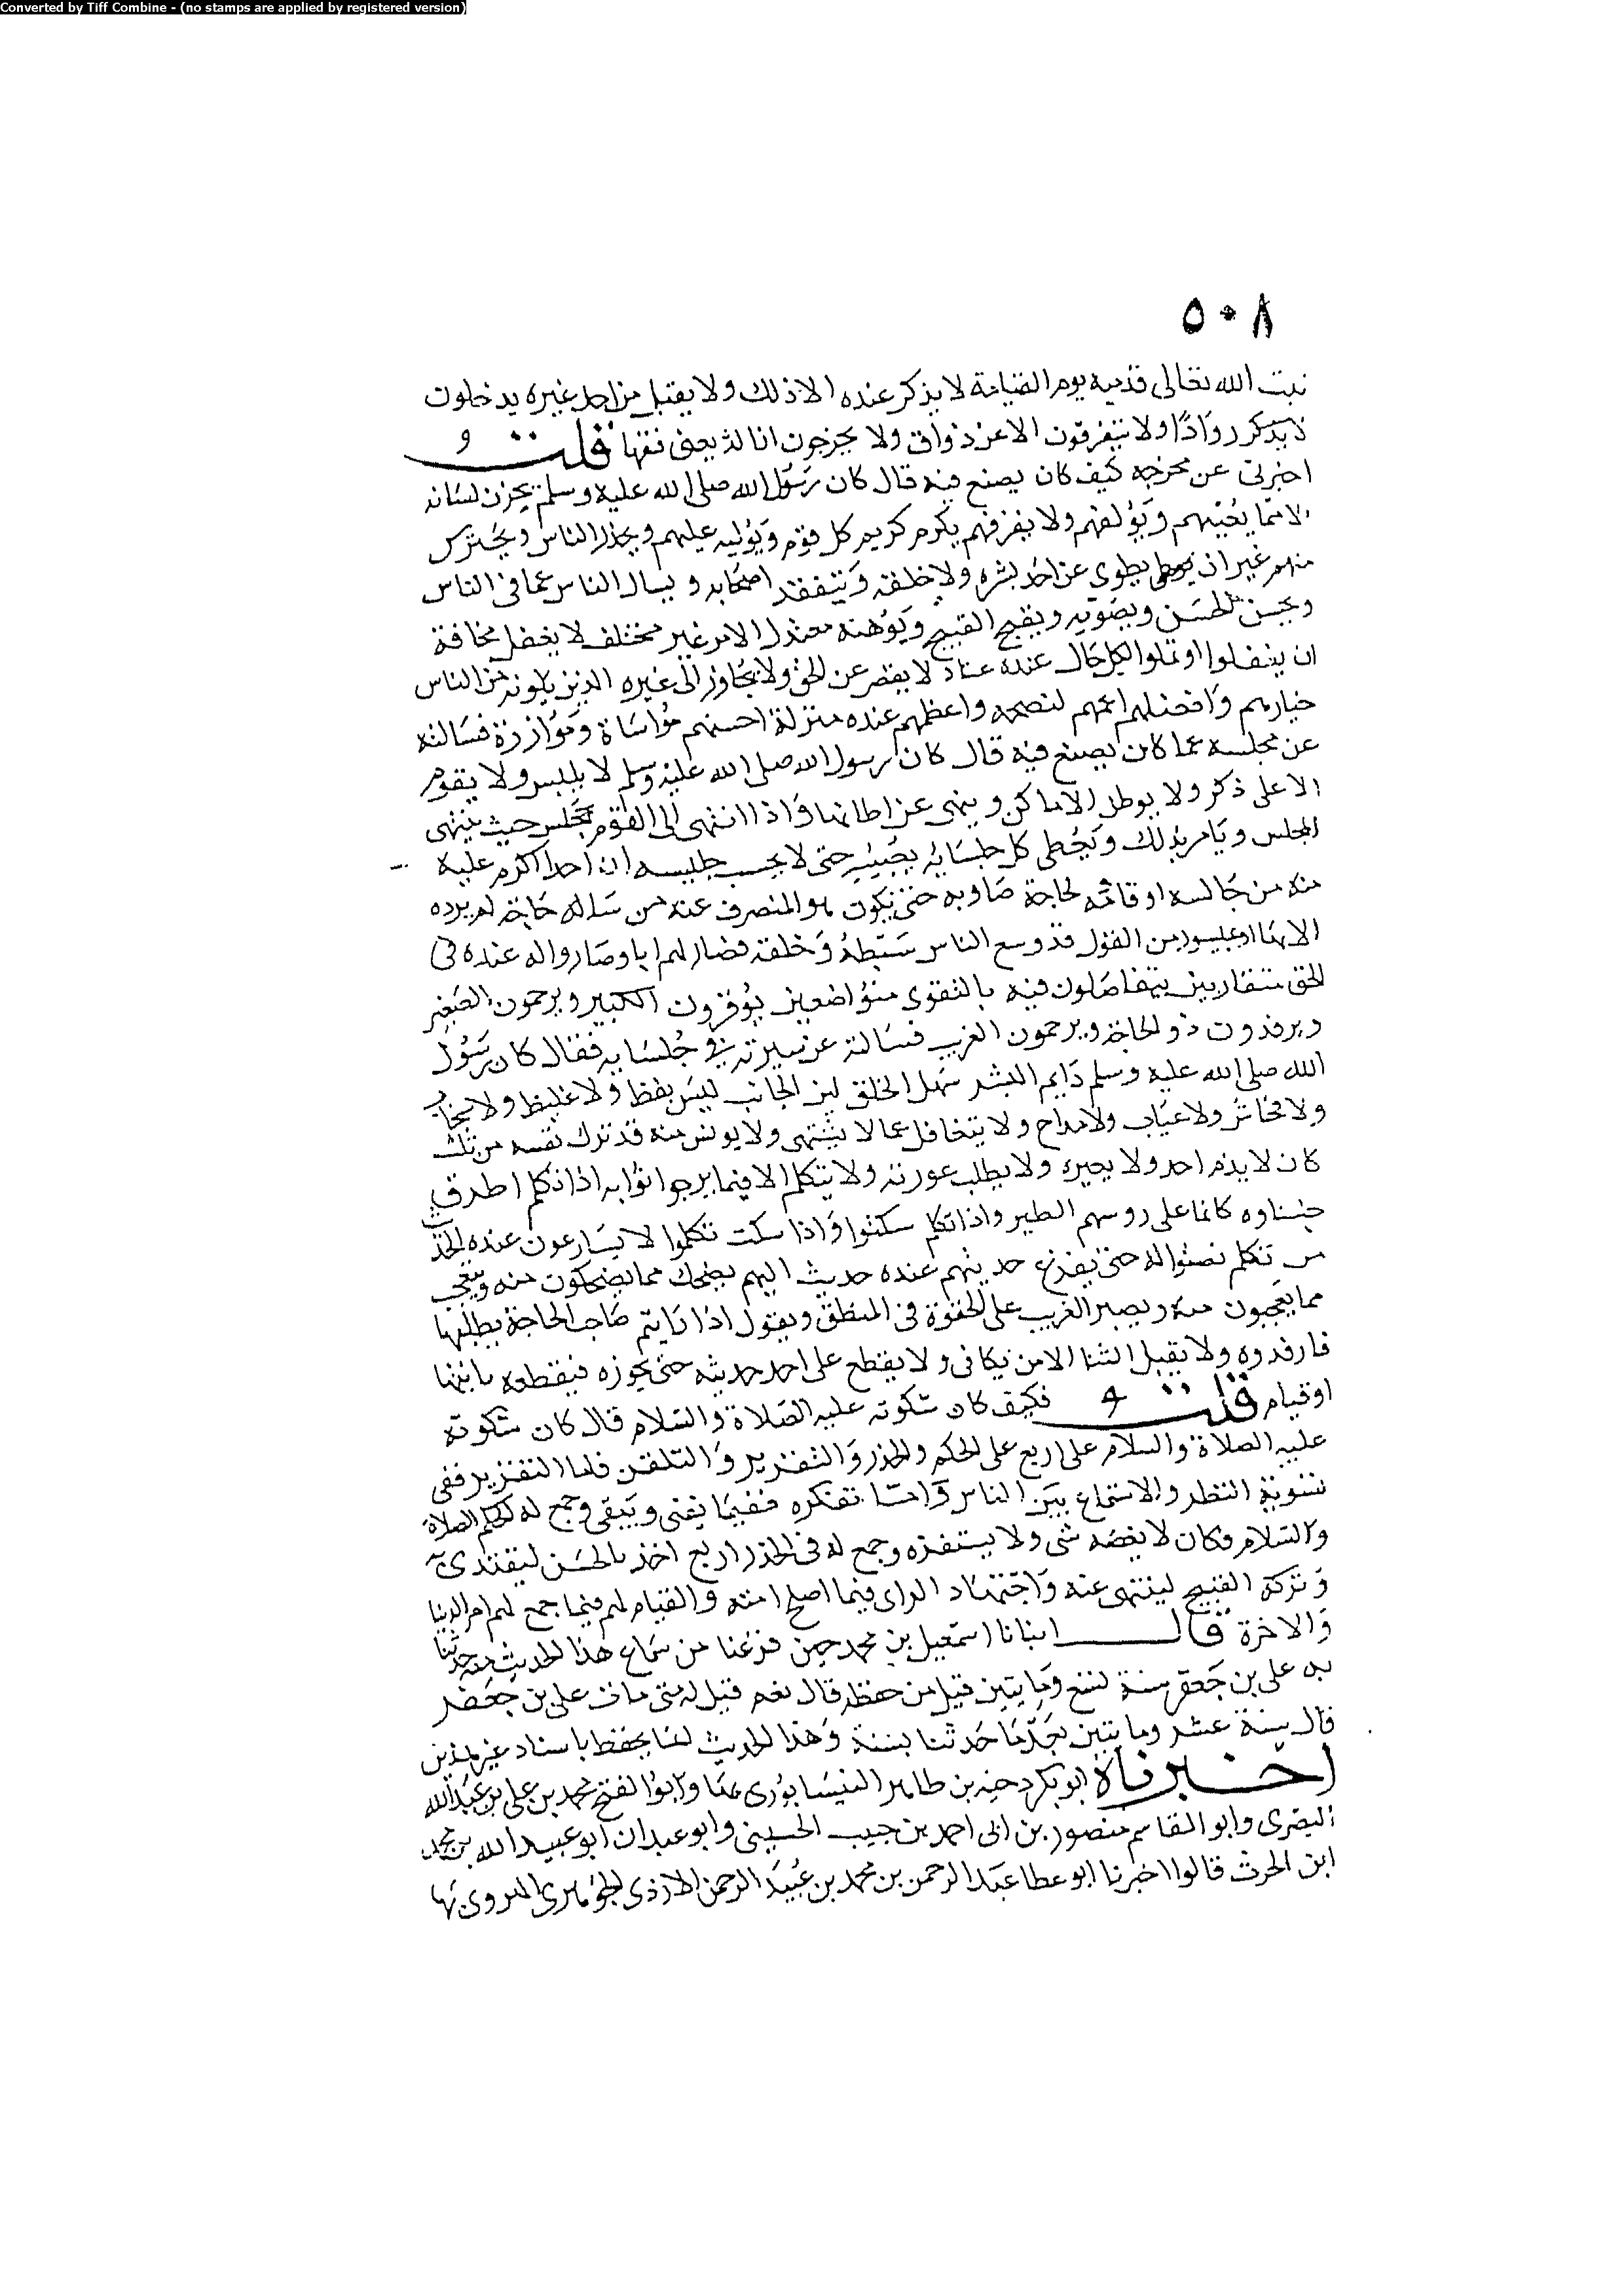 Converted by Tiff Combine - (no stamps are applied by registered version)
٥٠٨
ثبت الله تعالى قدميه يوم القيامة لا يذكر عنده الا ذلك ولا يقبل من احد غيره يدخلون
روادا ولا يتفرقون الا عن ذواق ولا يخرجون يعنى فقها قلت و
اخبرنى عن مخرجه كيف كان يصنع فيه قال كان رسول الله صلى الله عليه وسلم يخزن لسانه
الا مما يعنيهم ويؤلفهم ولا يفرقهم يكرم كريم كل قوم ويوليه عليهم ويحذر الناس ويحترس
منهم غير ان يطوى عن احد بشره ولا خلقه ويتفقد اصحابه ويسال الناس عما فى الناس
ويحسن الحسن ويصوبه ويقبح القبيح ويوهنه معتدل الامر غير مختلف لا يغفل مخافة
ان يغفلوا او يملوا لكل حال عنده عتاد لا يقصر عن الحق ولا يجاوز الى غيره الذين يلونه من الناس
خيارهم وافضلهم اعمهم نصحه واعظمهم عنده منزلة احسنهم مواساة ومؤازرة فسالته
عن مجلسه عما كان يصنع فيه قال كان رسول الله صلى الله عليه وسلم لا يجلس ولا يقوم
الا على ذكر ولا يوطن الاماكن وينهى عن ايطانها واذا انتهى الى القوم يجلس حيث ينتهى
المجلس ويامر بذلك ويعطى كل جلسايه حتى لا يحسب جليسه ان احدا اكرم عليه
منه من جالسه او قاومه لحاجة صاوبه حتى يكون هو المنصرف عنه من ساله حاجة لم يرده
الا بها او بميسور من القول قد وسع الناس بسطه وخلقه فصار لهم ابا وصاروا له عنده فى
الحق متقاربين يتفاضلون فيه بالتقوى متواضعين يوقرون الكبير ويرحمون الصغير
ويرفدون ذو الحاجة ويرحمون الغريب فسالته عن سيرته فى جلسايه فقال كان رسول
الله صلى الله عليه وسلم دايم البشر سهل الخلق لين الجانب ليس بفظ ولا غليظ ولا سخاب
ولا فحاش ولا عياب ولا مداح ولا يتغافل عما لا يشتهى ولا يويس منه قد ترك نفسه من ثلث
كان لا يذم احد ولا يعيره ولا يطلب عورته ولا يتكلم الا فيما يرجوا ثوابه اذا تكلم اطرق
جلساوه كانما على روسهم الطير واذا تكلم سكتوا واذا سكت تكلموا لا يسارعون عنده الحديث
من تكلم نصتوا له حتى يفرغ حديثهم عنده حديث اليهم يضحك مما يضحكون منه ويعجب
مما يعجبون منه ويصبر الغريب على الجفوة فى المنطق ويقول اذا رايتم صاحب الحاجة يطلبها
فارفدوه ولا يقبل الثنا الا من يكافى ولا يقطع على احد حديثه حتى يجوزه فيقطعه بانتها
او قيام قلت و فكيف كان سكوته عليه الصلاة والسلام قال كان سكوته
عليه الصلاة والسلام على اربع على الحكم والحذر والتقدير والتفكر فاما التقدير ففى
تسوية النظر والاستماع بين الناس واما تفكره ففيما يفنى ويبقى وجمع له الحكم الصلاة
والسلام فكان لا يغضبه شى ولا يستفزه وجمع له فى الحذر اربع اخذه بالحسن ليقتدى به
وتركه القبيح لينتهى عنه واجتهاد الراى فيما اصلح امته والقيام لهم فيما جمع لهم امر الدنيا
والاخرة قال انبانا اسمعيل بن محمد حين فرغنا من سماع هذا الحديث منه حدثنا
به على بن جعفر سنة تسع ومايتين قيل من حفظه قال نعم قيل له متى مات على بن جعفر
قال سنة عشر ومايتين بعد ما حدثنا بسنة وهذا الحديث يحفظ باسناد غير هذين
اخبرناه ابو بكر وجيه بن طاهر النيسابورى بها وابو الفتح محمد بن على بن عبد الله
البصرى وابو القاسم منصور بن ابى احمد بن حبيب الحسينى وابو عبدان ابو عبيد الله بن محمد
ابن الحرث قالوا اخبرنا ابو عطا عبد الرحمن بن محمد بن عبيد الرحمن الازدى الجوهرى الهروى بها